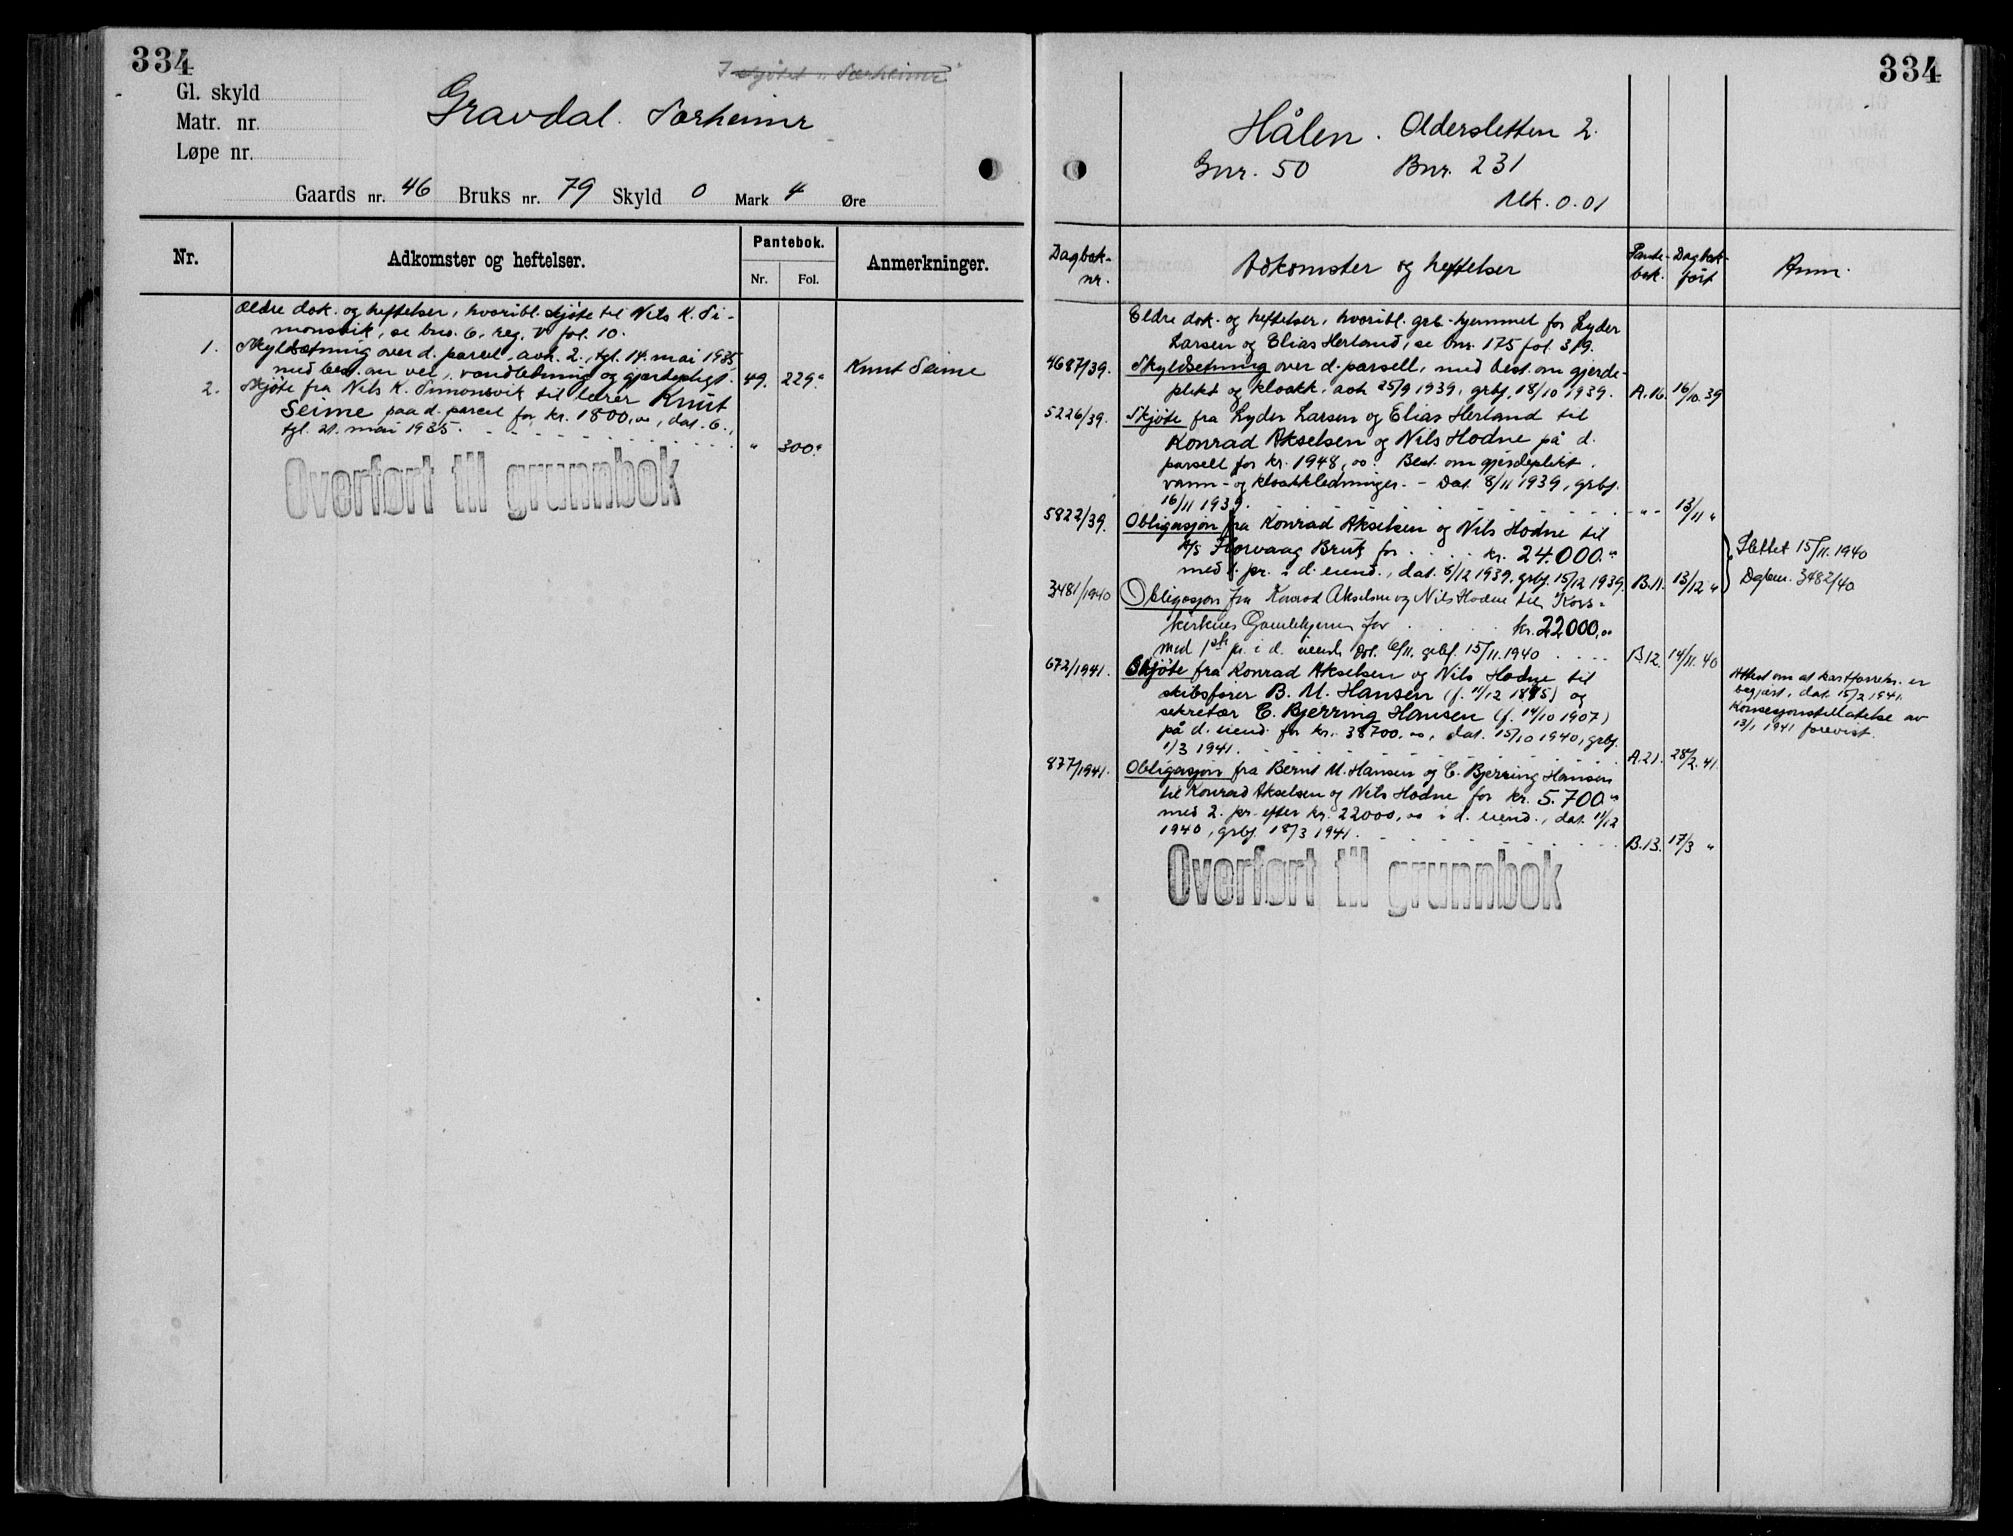 334
I skjøtet "Særheimr"
Gl. skyld
Matr. nr.
Løpe nr.
Gravdal. Særheimr
Gaards nr. 46 Bruks nr. 79 Skyld 0 Mark 4 Øre
Nr. Adkomster og heftelser. Pantebok. Nr. Fol. Anmerkninger.
Ældre dok. og heftelser, hvoribl. skjøte til Nils K. Si-
monsvik, se bno. 6, reg. V fol. 10.
1. Skyldsætning over d. parcel, avh. 2., tgl. 14. mai 1935,
med best. om vei, vandledning og gjærdepligt. 49. 229. Knut Seime
2. Skjøte fra Nils K. Simonsvik til lærer Knut
Seime paa d. parcel for kr. 1800,00, dat. 6.,
tgl. 21. mai 1935. " 300.
Overført til grunnbok
334
Hålen. Oldersletten 2.
Gnr. 50 Bnr. 231
Mk. 0.01
Dagbok-nr. Adkomster og heftelser Pante-bok. Dagbok-ført Anm.
Eldre dok. og heftelser, hvoribl. grb.-hjemmel for Lyder
Larsen og Elias Herland, se bnr. 175 fol. 319.
4687/39. Skyldsetning over d. parsell, med best. om gjerde-
plikt og kloakk, avh 25/9 1939, grbf. 18/10 1939. A.16. 16/10.39
5226/39. Skjøte fra Lyder Larsen og Elias Herland til
Konrad Akselsen og Nils Hodne på d.
parsell for kr. 1948,00. Best. om gjerdeplikt,
vann- og kloakkledninger. - Dat. 8/11 1939, grbf.
16/11 1939. " 13/11 "
5822/39. Obligasjon fra Konrad Akselsen og Nils Hodne til
A/S Florvaag Bruk for kr. 24.000.00
med 1. pr. i d. eiend., dat. 8/12 1939, grbf. 15/12 1939. B.11. 13/12 "
Slettet 15/11.1940
Dgbnr. 3482/40
3481/1940 Obligasjon fra Konrad Akselsen og Nils Hodne til Kors-
kirkens Gamlehjem for kr. 22000,00
med 1ste pr. i d. eiend. Dat. 6/11. grbf. 15/11.1940 B.12. 14/11.40
672/1941. Skjøte fra Konrad Akselsen og Nils Hodne til
skibsfører B. M. Hansen (f. 11/12 1875) og
sekretær C. Bjerring Hansen (f. 14/10 1907)
på d. eiend. for kr. 38700,00, dat. 15/10 1940, grbf.
1/3 1941. A.21. 28/2.41.
Attest om at kartforretn. er
begjært, dat. 15/2 1941.
Konsesjonstillatelse av
13/1 1941 forevist.
877/1941. Obligasjon fra Bernt M. Hansen og C. Bjerring Hansen
til Konrad Akselsen og Nils Hodne for kr. 5.700.00
med 2. pr. efter kr. 22000,00 i d. eiend., dat. 11/12
1940, grbf. 18/3 1941. B.13. 17/3 "
Overført til grunnbok